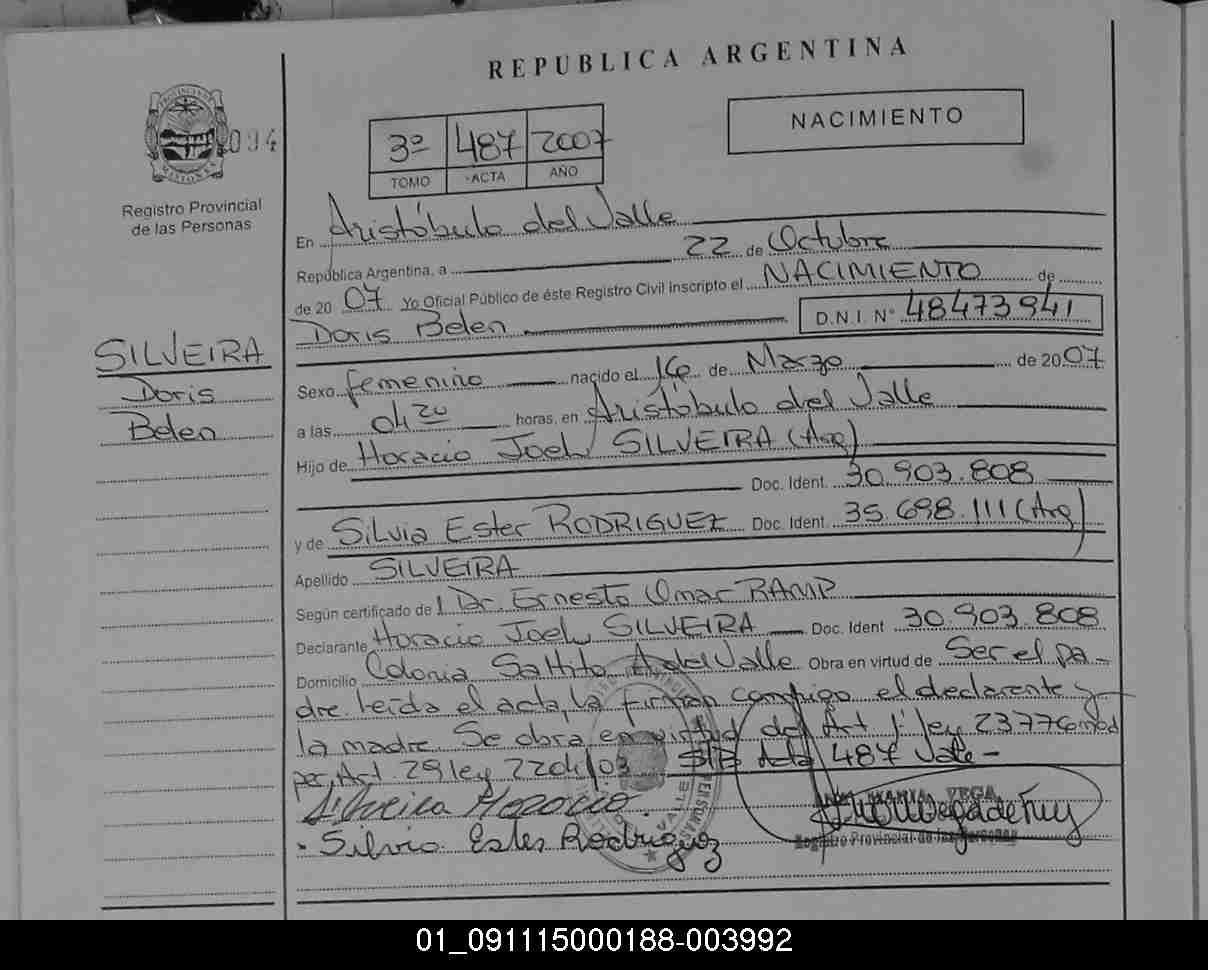 REPUBLICA ARGENTINA
NACIMIENTO
PROVINCIA DE
MISIONES
094
Registro Provincial
de las Personas
3º 487 2007
TOMO ACTA AÑO
En Aristóbulo del Valle
República Argentina, a 22 de Octubre
de 20 07 Yo Oficial Público de éste Registro Civil inscripto el NACIMIENTO de
Doris Belen D.N.I. Nº 48473941
SILVEIRA
Doris
Belen
Sexo femenino nacido el 16 de Marzo de 2007
a las 04 20 horas, en Aristóbulo del Valle
Hijo de Horacio Joel SILVEIRA (Arg)
Doc. Ident. 30.903.808
y de Silvia Ester RODRIGUEZ Doc. Ident. 35.698.111 (Arg)
Apellido SILVEIRA
Según certificado de Dr. Ernesto Omar RAMP
Declarante Horacio Joel SILVEIRA Doc. Ident 30.903.808
Domicilio Colonia Saltito A del Valle Obra en virtud de Ser el pa-
dre. Leida el acta, la firman conmigo el declarante y
la madre. Se obra en virtud del Art 1º ley 23776 mod
per Art. 29 ley 22041/03 S/B Acta 487 Vale -
Silveira Horacio
Silvia Ester Rodriguez
MARIA VEGA
Registro Provincial de las Personas
01_091115000188-003992